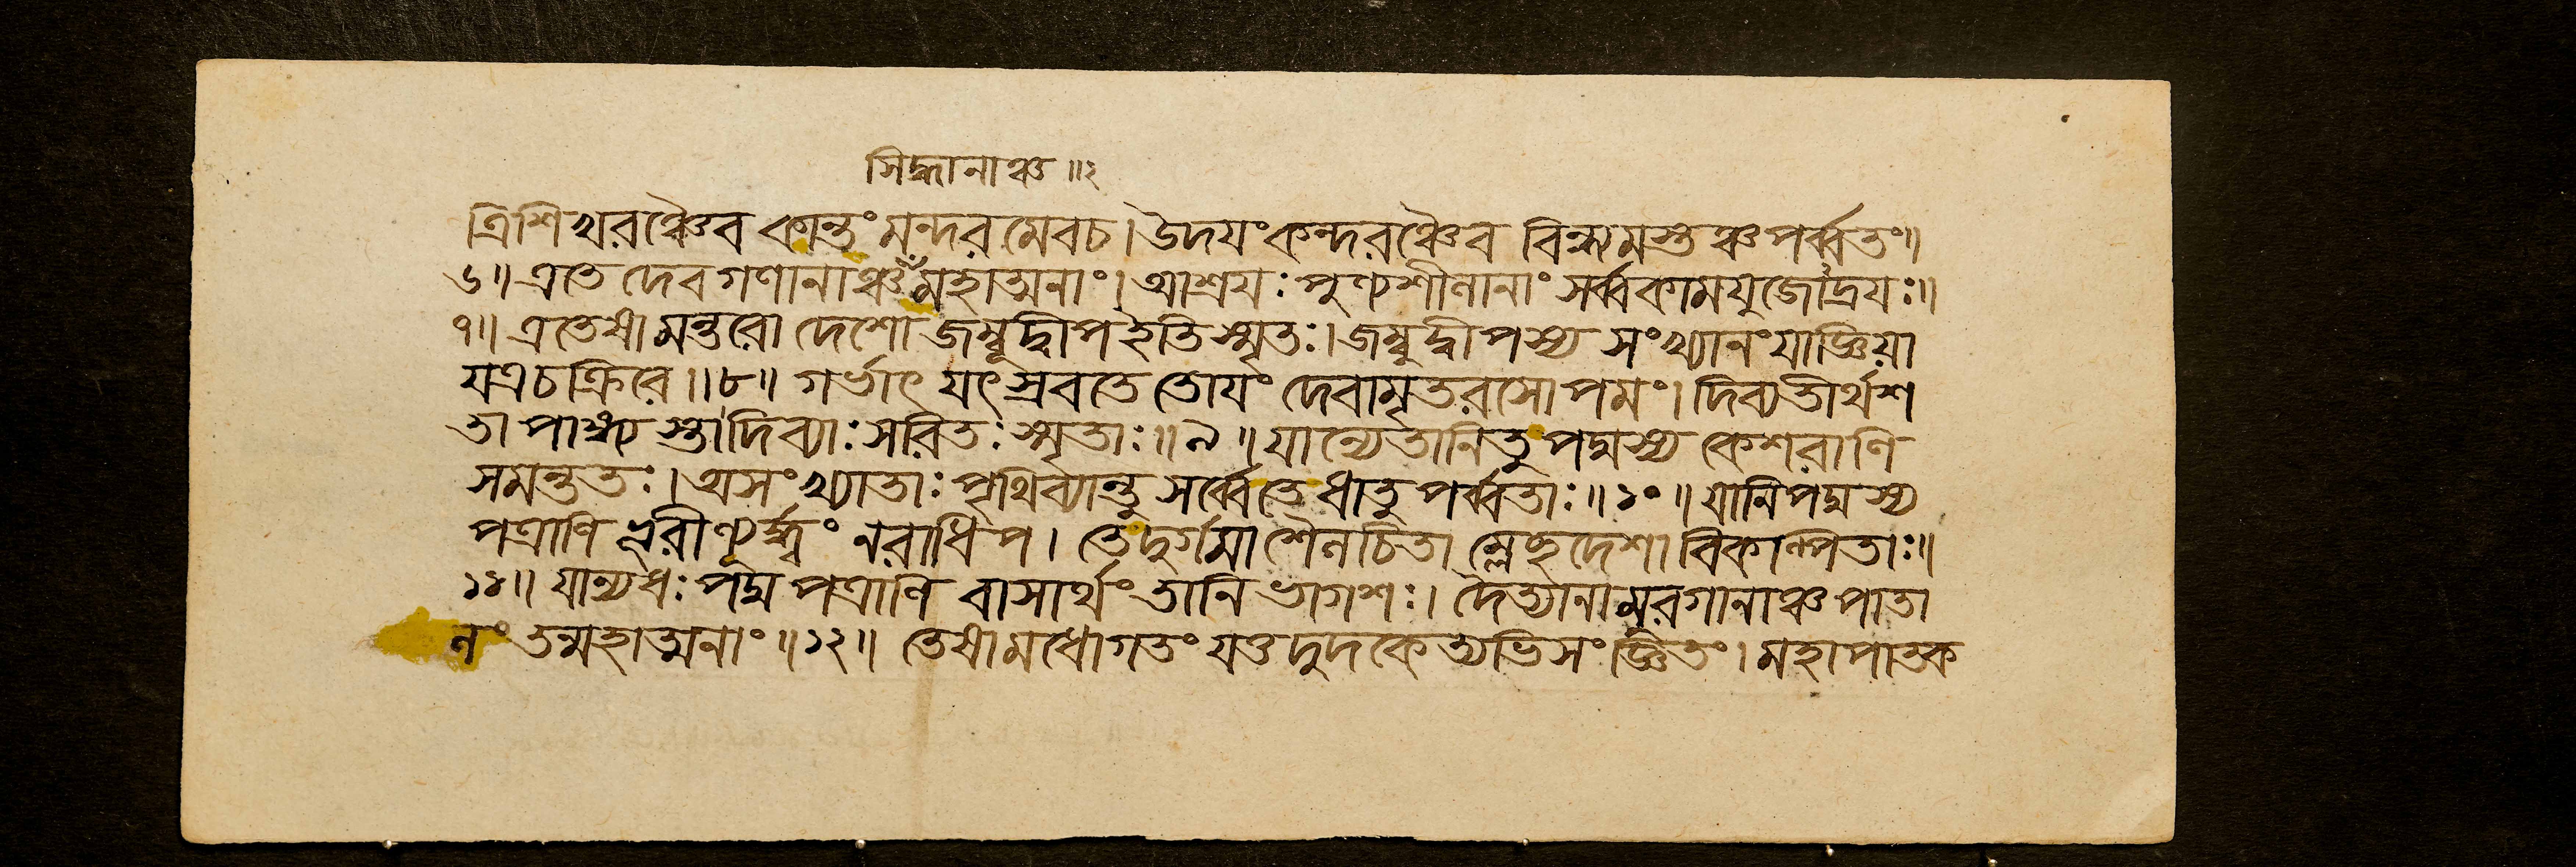 সিদ্ধানাঞ্চ ॥২
ত্রিশিখরঞ্চৈব কান্তং মন্দর মেবচ। উদযং কন্দরঞ্চৈব বিন্ধ্যমস্তঞ্চ পর্ব্বতং॥
৬॥ এতে দেবগণানাঞ্চ মহাত্মনাং। আশ্রযঃ পুণ্যশীলানাং সর্ব্বকামযুজোদ্রযঃ॥
৭॥ এতেষামন্তরো দেশো জম্বূদ্বীপ ইতি স্মৃতঃ। জম্বুদ্বীপস্য সংখ্যানং যাজ্ঞিয়া
যত্র চক্রিরে॥৮॥ গর্ভাৎ যৎ স্রবতে তোযং দেবামৃতরসোপমং। দিব্যতীর্থশ
তা পাঙ্গ্যস্তা দিব্যাঃ সরিতঃ স্মৃতাঃ॥৯॥ যান্যেতানি তু পদ্মস্য কেশরাণি
সমন্ততঃ। অসংখ্যাতাঃ পৃথিব্যান্তু সর্ব্বে তে ধাতু পর্ব্বতাঃ॥১০॥ যানি পদ্মস্য
পত্রাণি ভূরীণ্যূর্দ্ধ্বং নরাধিপ। তে দুর্গমা শৈলচিতা ম্লেছদেশা বিকল্পিতাঃ॥
১১॥ যান্যধঃ পদ্মপত্রাণি বাসার্থং তানি ভাগশঃ। দৈত্যানামুরগানাঞ্চ পাতা
লং তন্মহাত্মনাং॥১২॥ তেষামধোগতং যত্তদুদকেত্যভিসংজ্ঞিতং। মহাপাতক